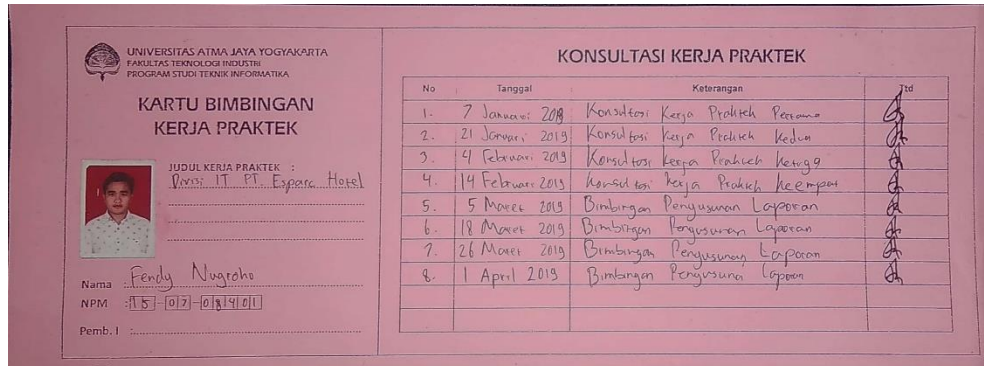 UNIVERSITAS ATMA JAYA YOGYAKARTA
FAKULTAS TEKNOLOGI INDUSTRI
PROGRAM STUDI TEKNIK INFORMATIKA
KARTU BIMBINGAN
KERJA PRAKTEK
JUDUL KERJA PRAKTEK :
Divisi IT PT. Esparc Hotel
Nama : Fendy Nugroho
NPM : 15-07-08401
Pemb. I :
KONSULTASI KERJA PRAKTEK
No Tanggal Keterangan Ttd
1. 7 Januari 2019 Konsultasi Kerja Praktek Pertama
2. 21 Januari 2019 Konsultasi Kerja Praktek Kedua
3. 4 Februari 2019 Konsultasi Kerja Praktek Ketiga
4. 14 Februari 2019 Konsultasi Kerja Praktek Keempat
5. 5 Maret 2019 Bimbingan Penyusunan Laporan
6. 18 Maret 2019 Bimbingan Penyusunan Laporan
7. 26 Maret 2019 Bimbingan Penyusunan Laporan
8. 1 April 2019 Bimbingan Penyusuna Laporan